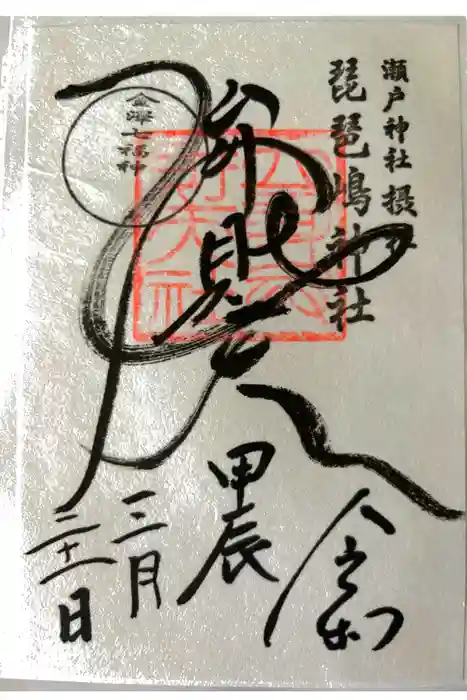 瀬戸神社 摂社
琵琶嶋神社
弁財天
金澤七福神
令和
甲辰
三月
二十一日